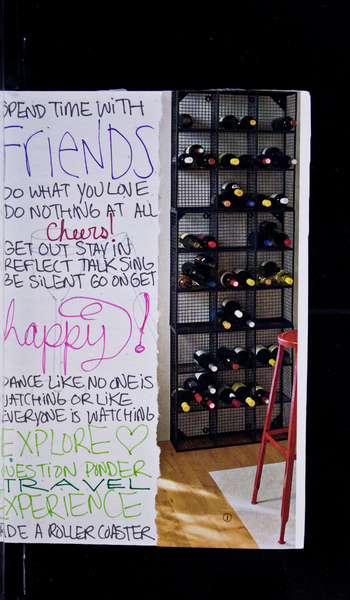 SPEND TIME WITH
FRIENDS
DO WHAT YOU LOVE
DO NOTHING AT ALL
Cheers!
GET OUT STAY IN
REFLECT TALK SING
BE SILENT GO ON GET
happy!
DANCE LIKE NO ONE IS
WATCHING OR LIKE
EVERYONE IS WATCHING
EXPLORE
QUESTION PONDER
TRAVEL
EXPERIENCE
RIDE A ROLLER COASTER